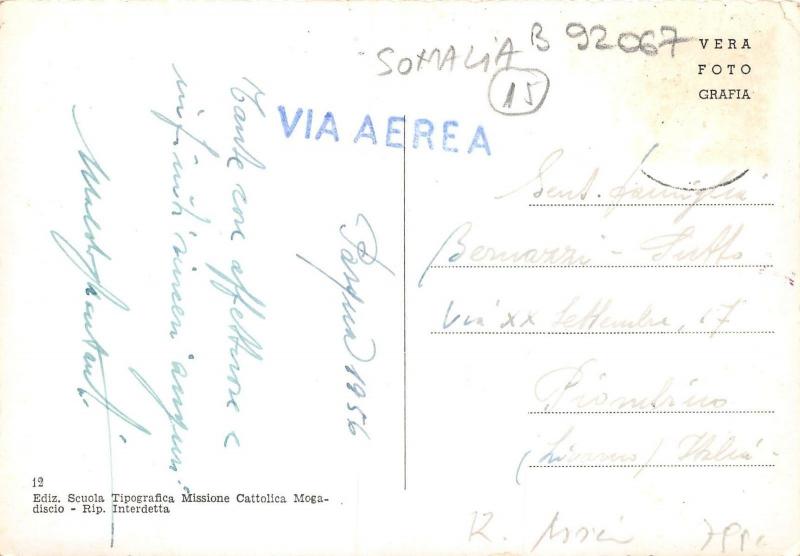 SOMALIA B 92067
15
VERA
FOTO
GRAFIA
VIA AEREA
Tante cose affettuose e
infiniti sinceri auguri
Pasqua 1956
Gent. famiglia
Bernazzi - Tutto
Via XX Settembre, 17
Piombino
(Livorno) Italia
12
Ediz. Scuola Tipografica Missione Cattolica Moga-
discio - Rip. Interdetta